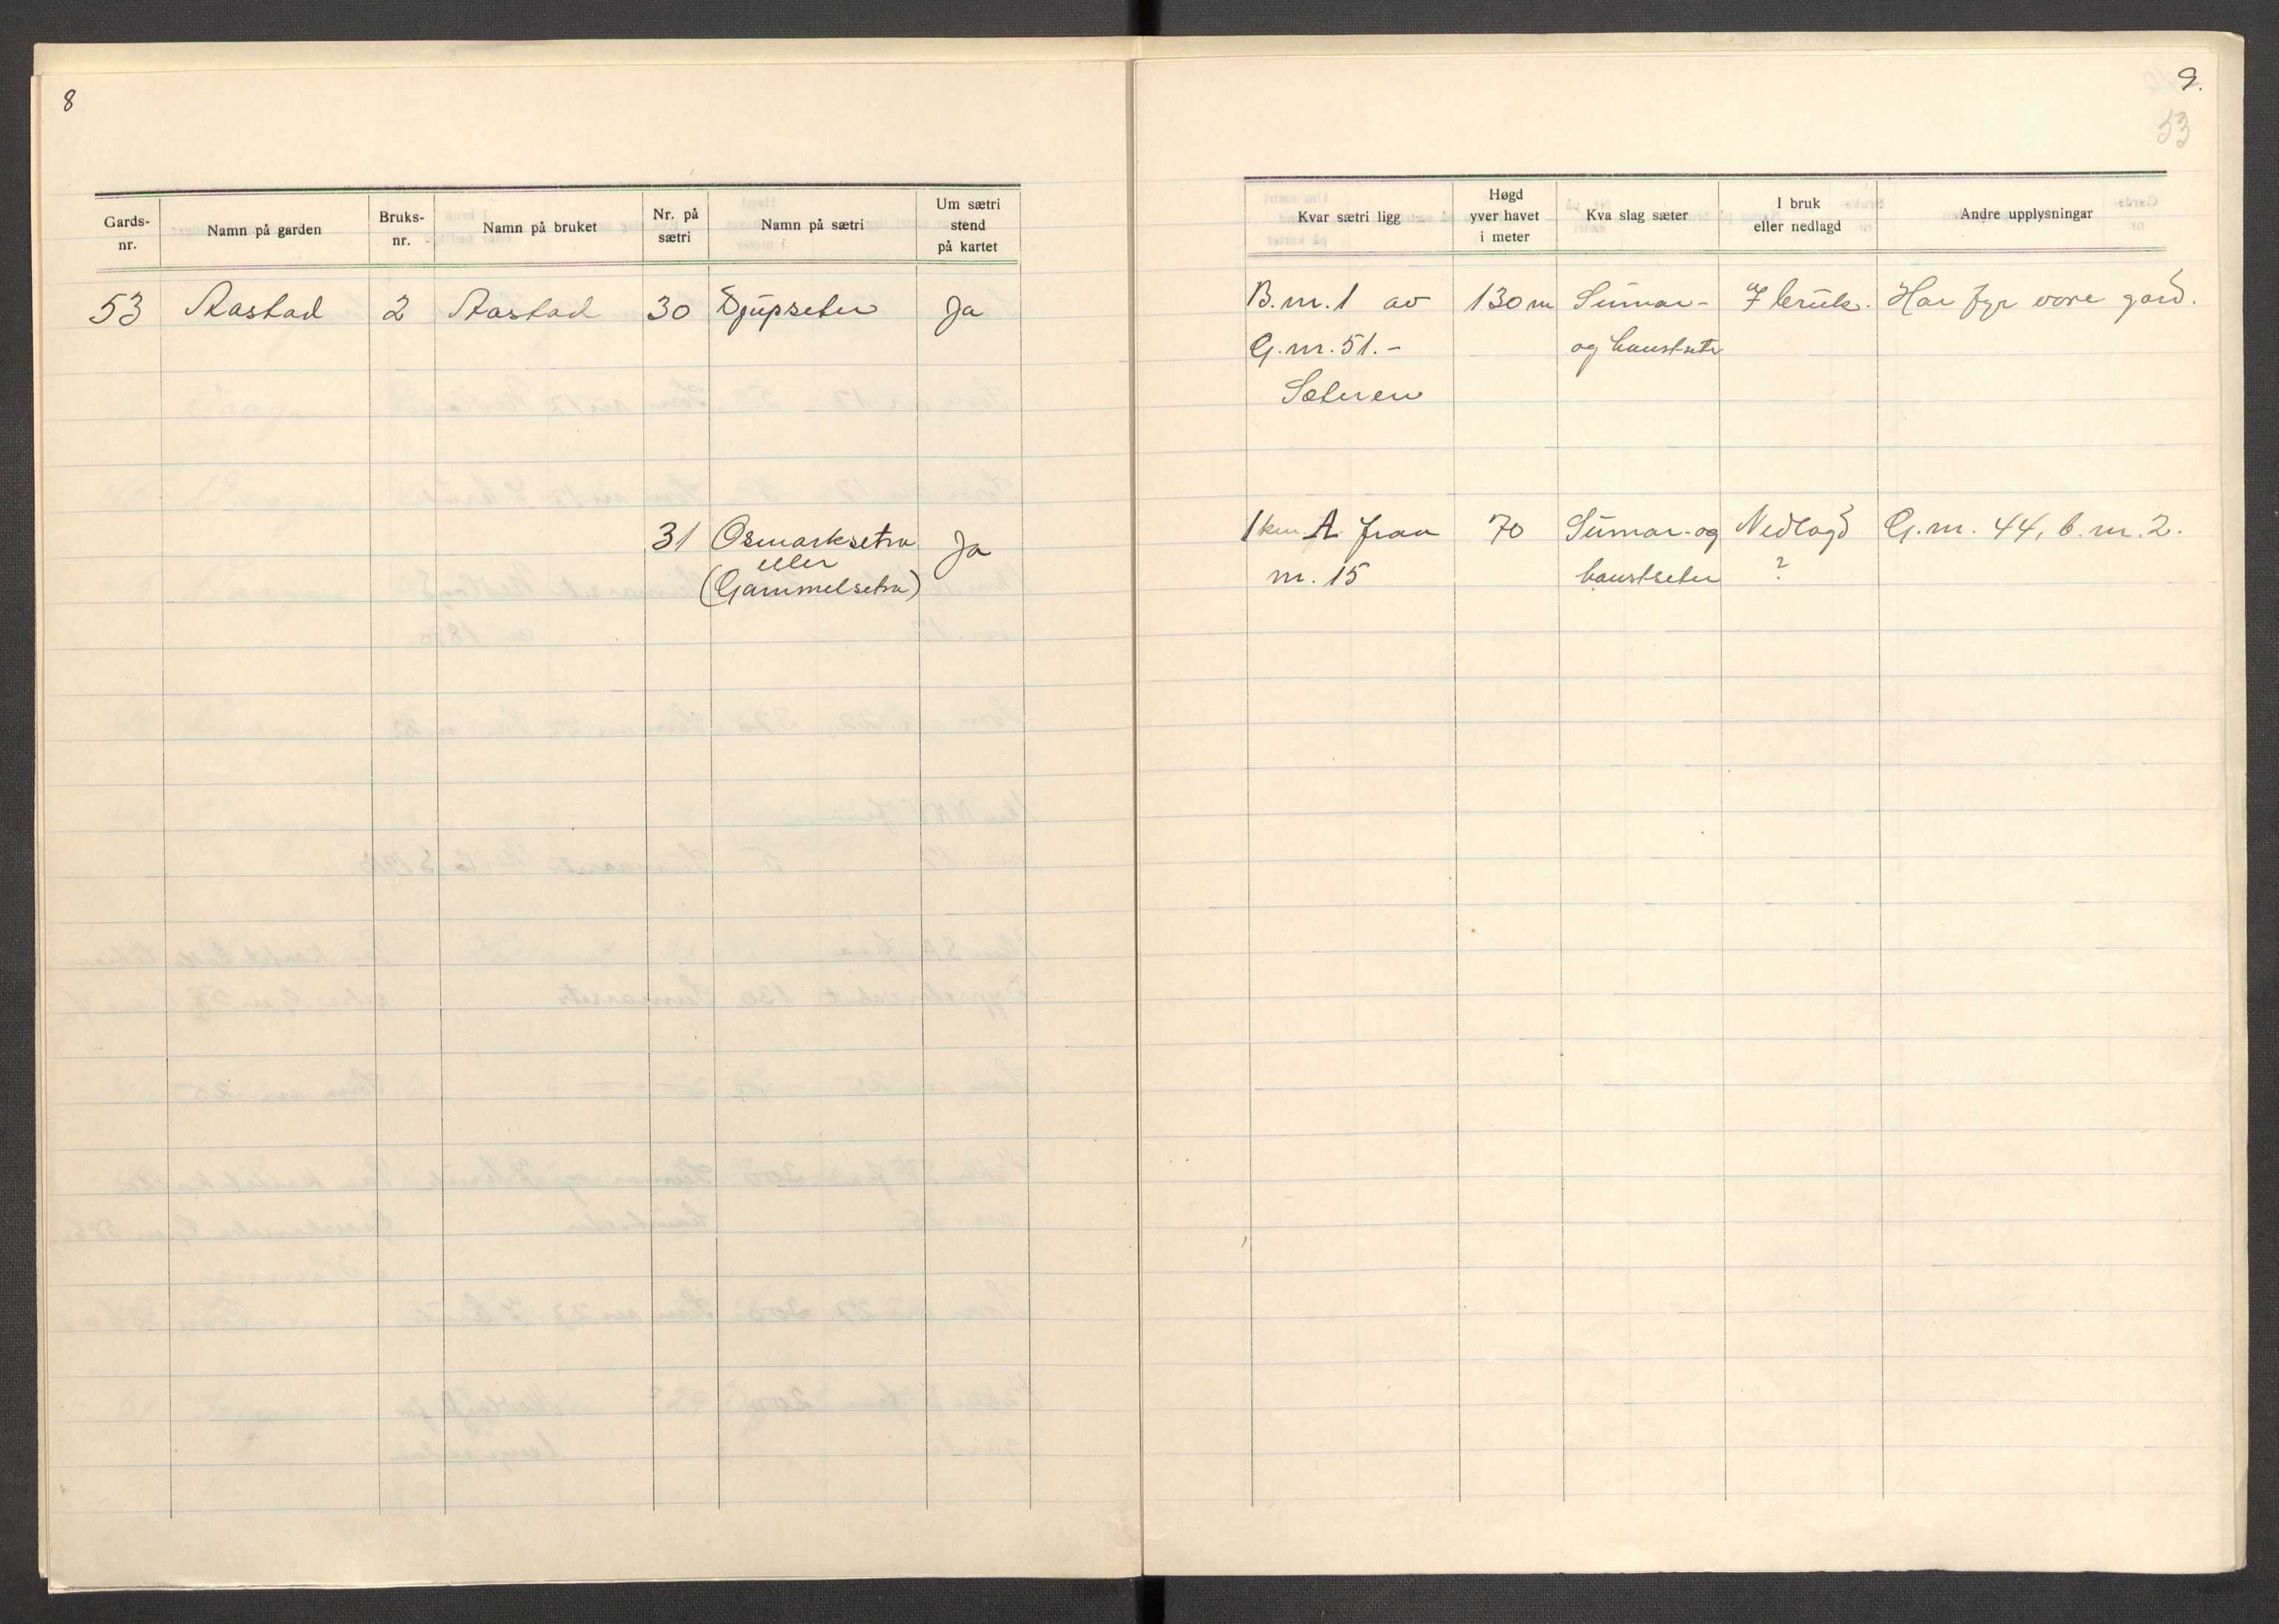 8
Gards-
nr.
Namn på garden
Bruks-
nr.
Namn på bruket
Nr. på
sætri
Namn på sætri
Um sætri
stend
på kartet
53 Aastad 2 Aastad 30 Djupseter Ja
31 Osmarksetra Ja
eller
(Gammelsetra)
9.
53
Kvar sætri ligg
Høgd
yver havet
i meter
Kva slag sæter
I bruk
eller nedlagd
Andre upplysningar
B. nr. 1 av 130 m Sumar- I bruk. Har fyr vore gard.
G. nr. 51. - og haustseter
Seteren
1 km A fraa 70 Sumar- og Nedlagd G. nr. 44, b. nr. 2.
nr. 15 haustseter ?